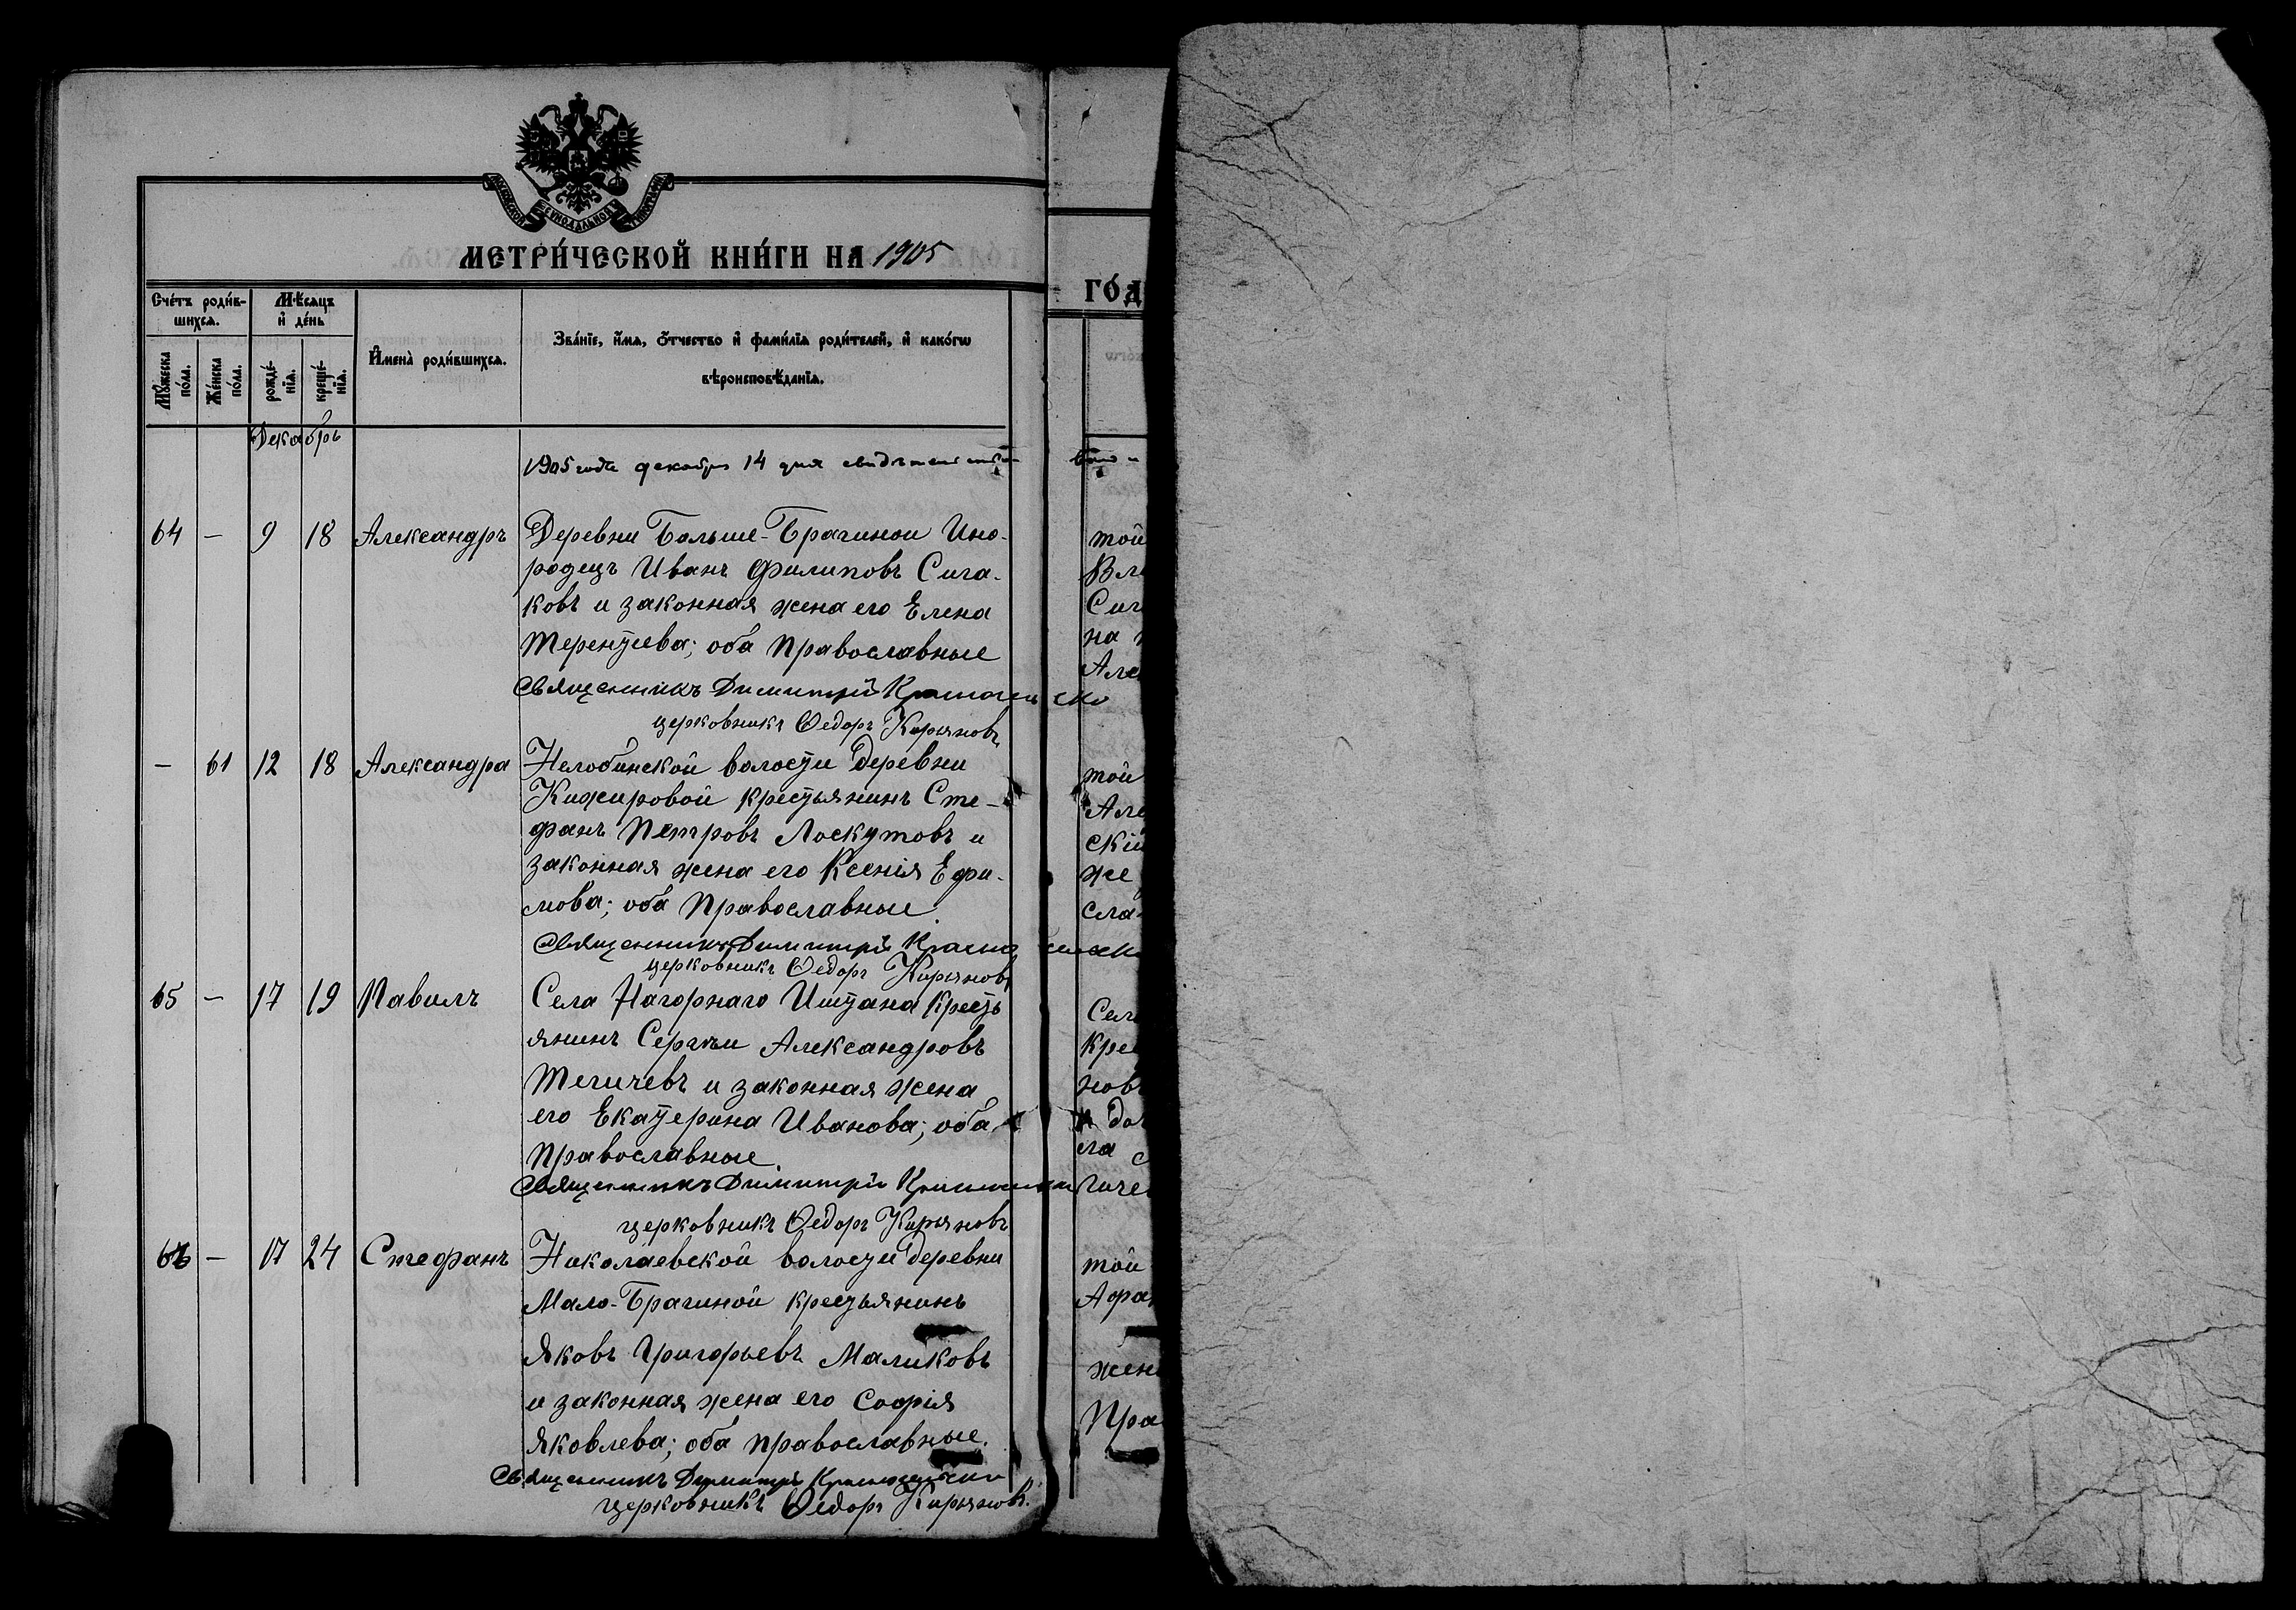 МОСКОВСКОЙ СѴНОДАЛЬНОЙ ТИПОГРАФІИ
МЕТРИ́ЧЕСКОЙ КНИ́ГИ НА 1905
ГО́Д
Сче́тъ роди́в-
шихсѧ.
Мѣ́сѧцъ
и҆ де́нь
Мꙋжеска
по́ла.
Же́нска
по́ла.
рожде́-
нїѧ.
креще́-
нїѧ.
И҆мена̀ роди́вшихсѧ.
Зва́нїе, и҆́мѧ, ѻ҆́тчество и҆ фами́лїѧ роди́телей, и҆ како́гѡ
вѣроисповѣ́данїѧ.
Декабрь
1905 года декабря 14 дня
64 – 9 18 Александръ Деревни Больше-Брагиной Ино-
родецъ Иванъ Филиповъ Сига-
ковъ и законная жена его Елена
Терентьева; оба Православные
Священникъ Димитрій
церковникъ Ѳедоръ Кирьяновъ
– 61 12 18 Александра Нелобинской волости деревни
Кижировой крестьянинъ Сте-
фанъ Петровъ Лоскутовъ и
законная жена его Ксенія Ефи-
мова; оба Православные.
Священникъ Димитрій
церковникъ Ѳедоръ Кирьяновъ
65 – 17 19 Павилъ Села Нагорнаго Иштана Кресть
янинъ Сергѣи Александровъ
Тегичевъ и законная жена
его Екатерина Иванова; оба
Православные.
Священникъ Димитрій
церковникъ Ѳедоръ Кирьяновъ
66 – 17 24 Стефанъ Николаевской волости деревни
Мало-Брагиной крестьянинъ
Яковъ Григорьевъ Маликовъ
и законная жена его Софія
Яковлева; оба православные.
Священникъ Димитрій
церковникъ Ѳедоръ Кирьяновъ.
той
Сиг
на
Але
той
Але
скій
же
сла
Село
кре
новъ
до
ла
гиче
той
Афа
жен
Пра